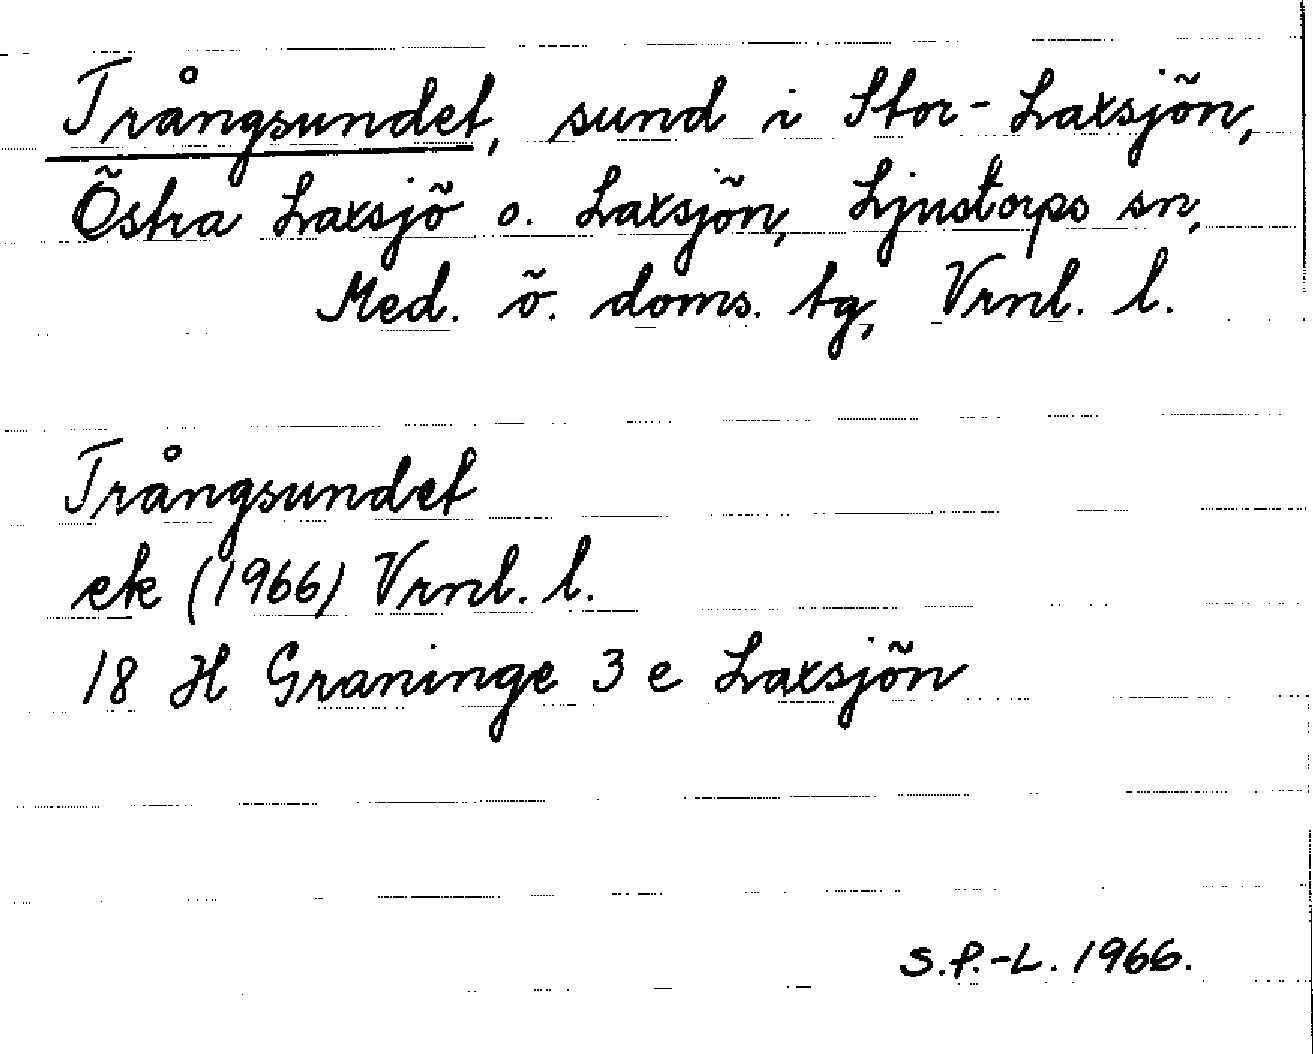 Trångsundet, sund i Stor-Laxsjön,
Östra Laxsjö o. Laxsjön, Ljustorps sn,
Med. ö. doms. tg, Vrnl. l.
Trångsundet
ek (1966) Vrnl. l.
18 H Graninge 3 e Laxsjön
S.P.-L. 1966.